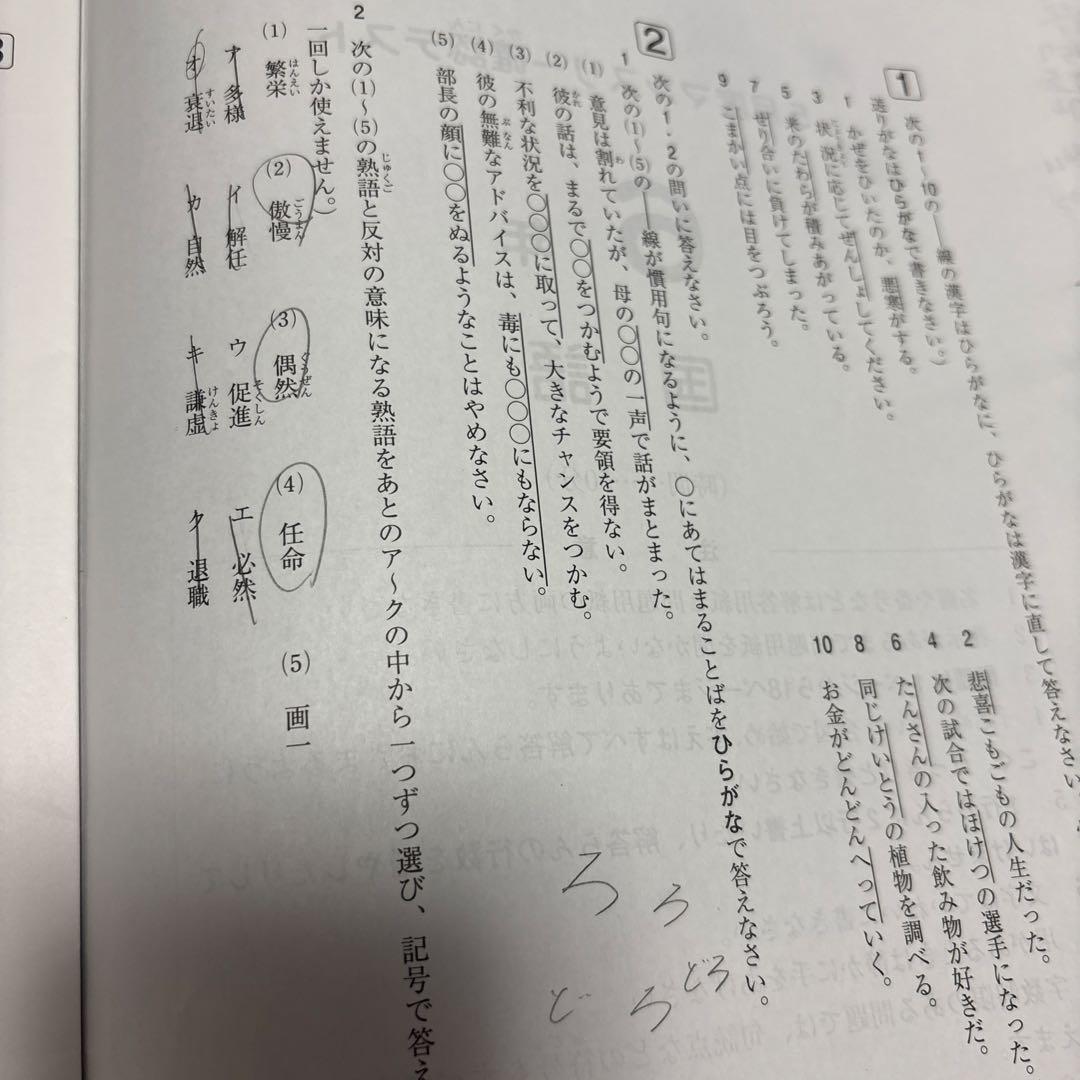 1
次の1~10の――線の漢字はひらがなに、ひらがなは漢字に直して答えなさい。
送りがなはひらがなで書きなさい。)
1 かぜをひいたのか、悪寒がする。
2 悲喜こもごもの人生だった。
3 状況に応じてぜんしょしてください。
4 次の試合ではほけつの選手になった。
5 米のたわらが積みあがっている。
6 たんさんの入った飲み物が好きだ。
7 せり合いに負けてしまった。
8 同じけいとうの植物を調べる。
9 こまかい点には目をつぶろう。
10 お金がどんどんへっていく。
2
次の1・2の問いに答えなさい。
1 次の(1)~(5)の――線が慣用句になるように、○にあてはまることばをひらがなで答えなさい。
(1) 意見は割れていたが、母の○○の一声で話がまとまった。
(2) 彼の話は、まるで○○をつかむようで要領を得ない。
(3) 不利な状況を○○○に取って、大きなチャンスをつかむ。
(4) 彼の無難なアドバイスは、毒にも○○○にもならない。
(5) 部長の顔に○○をぬるようなことはやめなさい。
2 次の(1)~(5)の熟語と反対の意味になる熟語をあとのア~クの中から一つずつ選び、記号で答え
一回しか使えません。)
(1) 繁栄 (2) 傲慢 (3) 偶然 (4) 任命 (5) 画一
ア 多様 イ 解任 ウ 促進 エ 必然
オ 衰退 カ 自然 キ 謙虚 ク 退職
ろ
ろ
どろ
ど
ろ